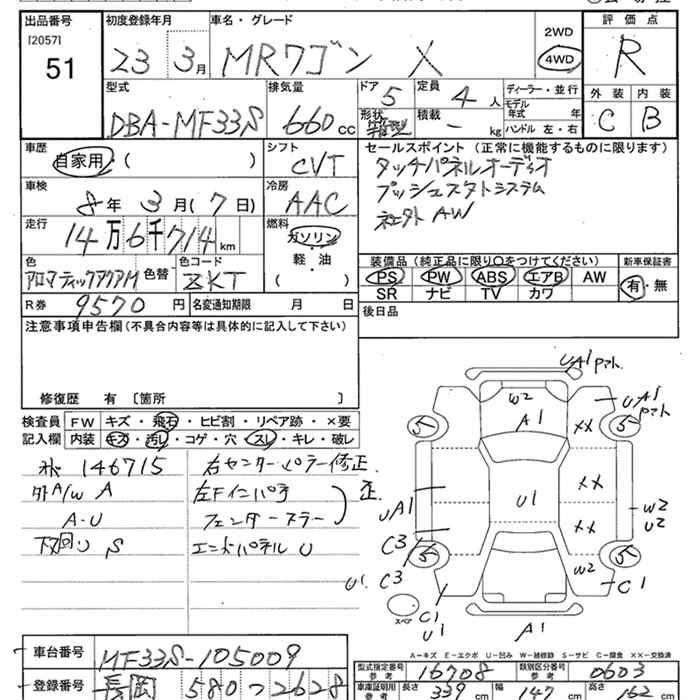 出品番号 初度登録年月 車名・グレード 評価点
[2057]
51 23 3月 MRワゴン X 2WD 4WD R
型式 排気量 ドア 定員 ディーラー・並行 外装 内装
DBA-MF33S 660cc 5 4人 モデル年式 年 C B
形状 箱型 積載 - kg ハンドル 左・右
車歴 シフト セールスポイント(正常に機能するものに限ります)
自家用・( ) CVT タッチパネルオーディオ
車検 冷房 プッシュスタートシステム
8年 3月(7日) AAC 社外 AW
走行 燃料
14万6千714km ガソリン・軽・油 ( )
装備品(純正品に限り○をつけてください) 新車保証書
色 色替 色コード PS PW ABS エアB AW 有・無
アロマティックアクアM ZKT SR ナビ TV カワ
R券 9570円 名変通知期限 月 日 後日品
注意事項申告欄(不具合内容等は具体的に記入して下さい)
修復歴 有〔箇所 〕
検査員 FW キズ・飛石・ヒビ割・リペア跡・×要
記入欄 内装 キズ・汚レ・コゲ・穴・スレ・キレ・破レ
146715 右センターピラー修正
外A/W A 左Fインパネ
A・U フェンダーステー 正
下回り S エンドパネル U
UA1
W2
A1
UA1
5
××
××
U1
××
UA1
W2
U2
C3
W2
5
U1 C3
C1
スペア
C1
U1
A1
車台番号 MF33S-105009
A-キズ E-エクボ U-凹み W-補修跡 S-サビ C-腐食 ××-交換済
型式指定番号 参考 16708 類別区分番号 参考 0603
登録番号 長岡 580 つ 2628
車庫証明用 参考 長さ 339cm 幅 147cm 高さ 162cm